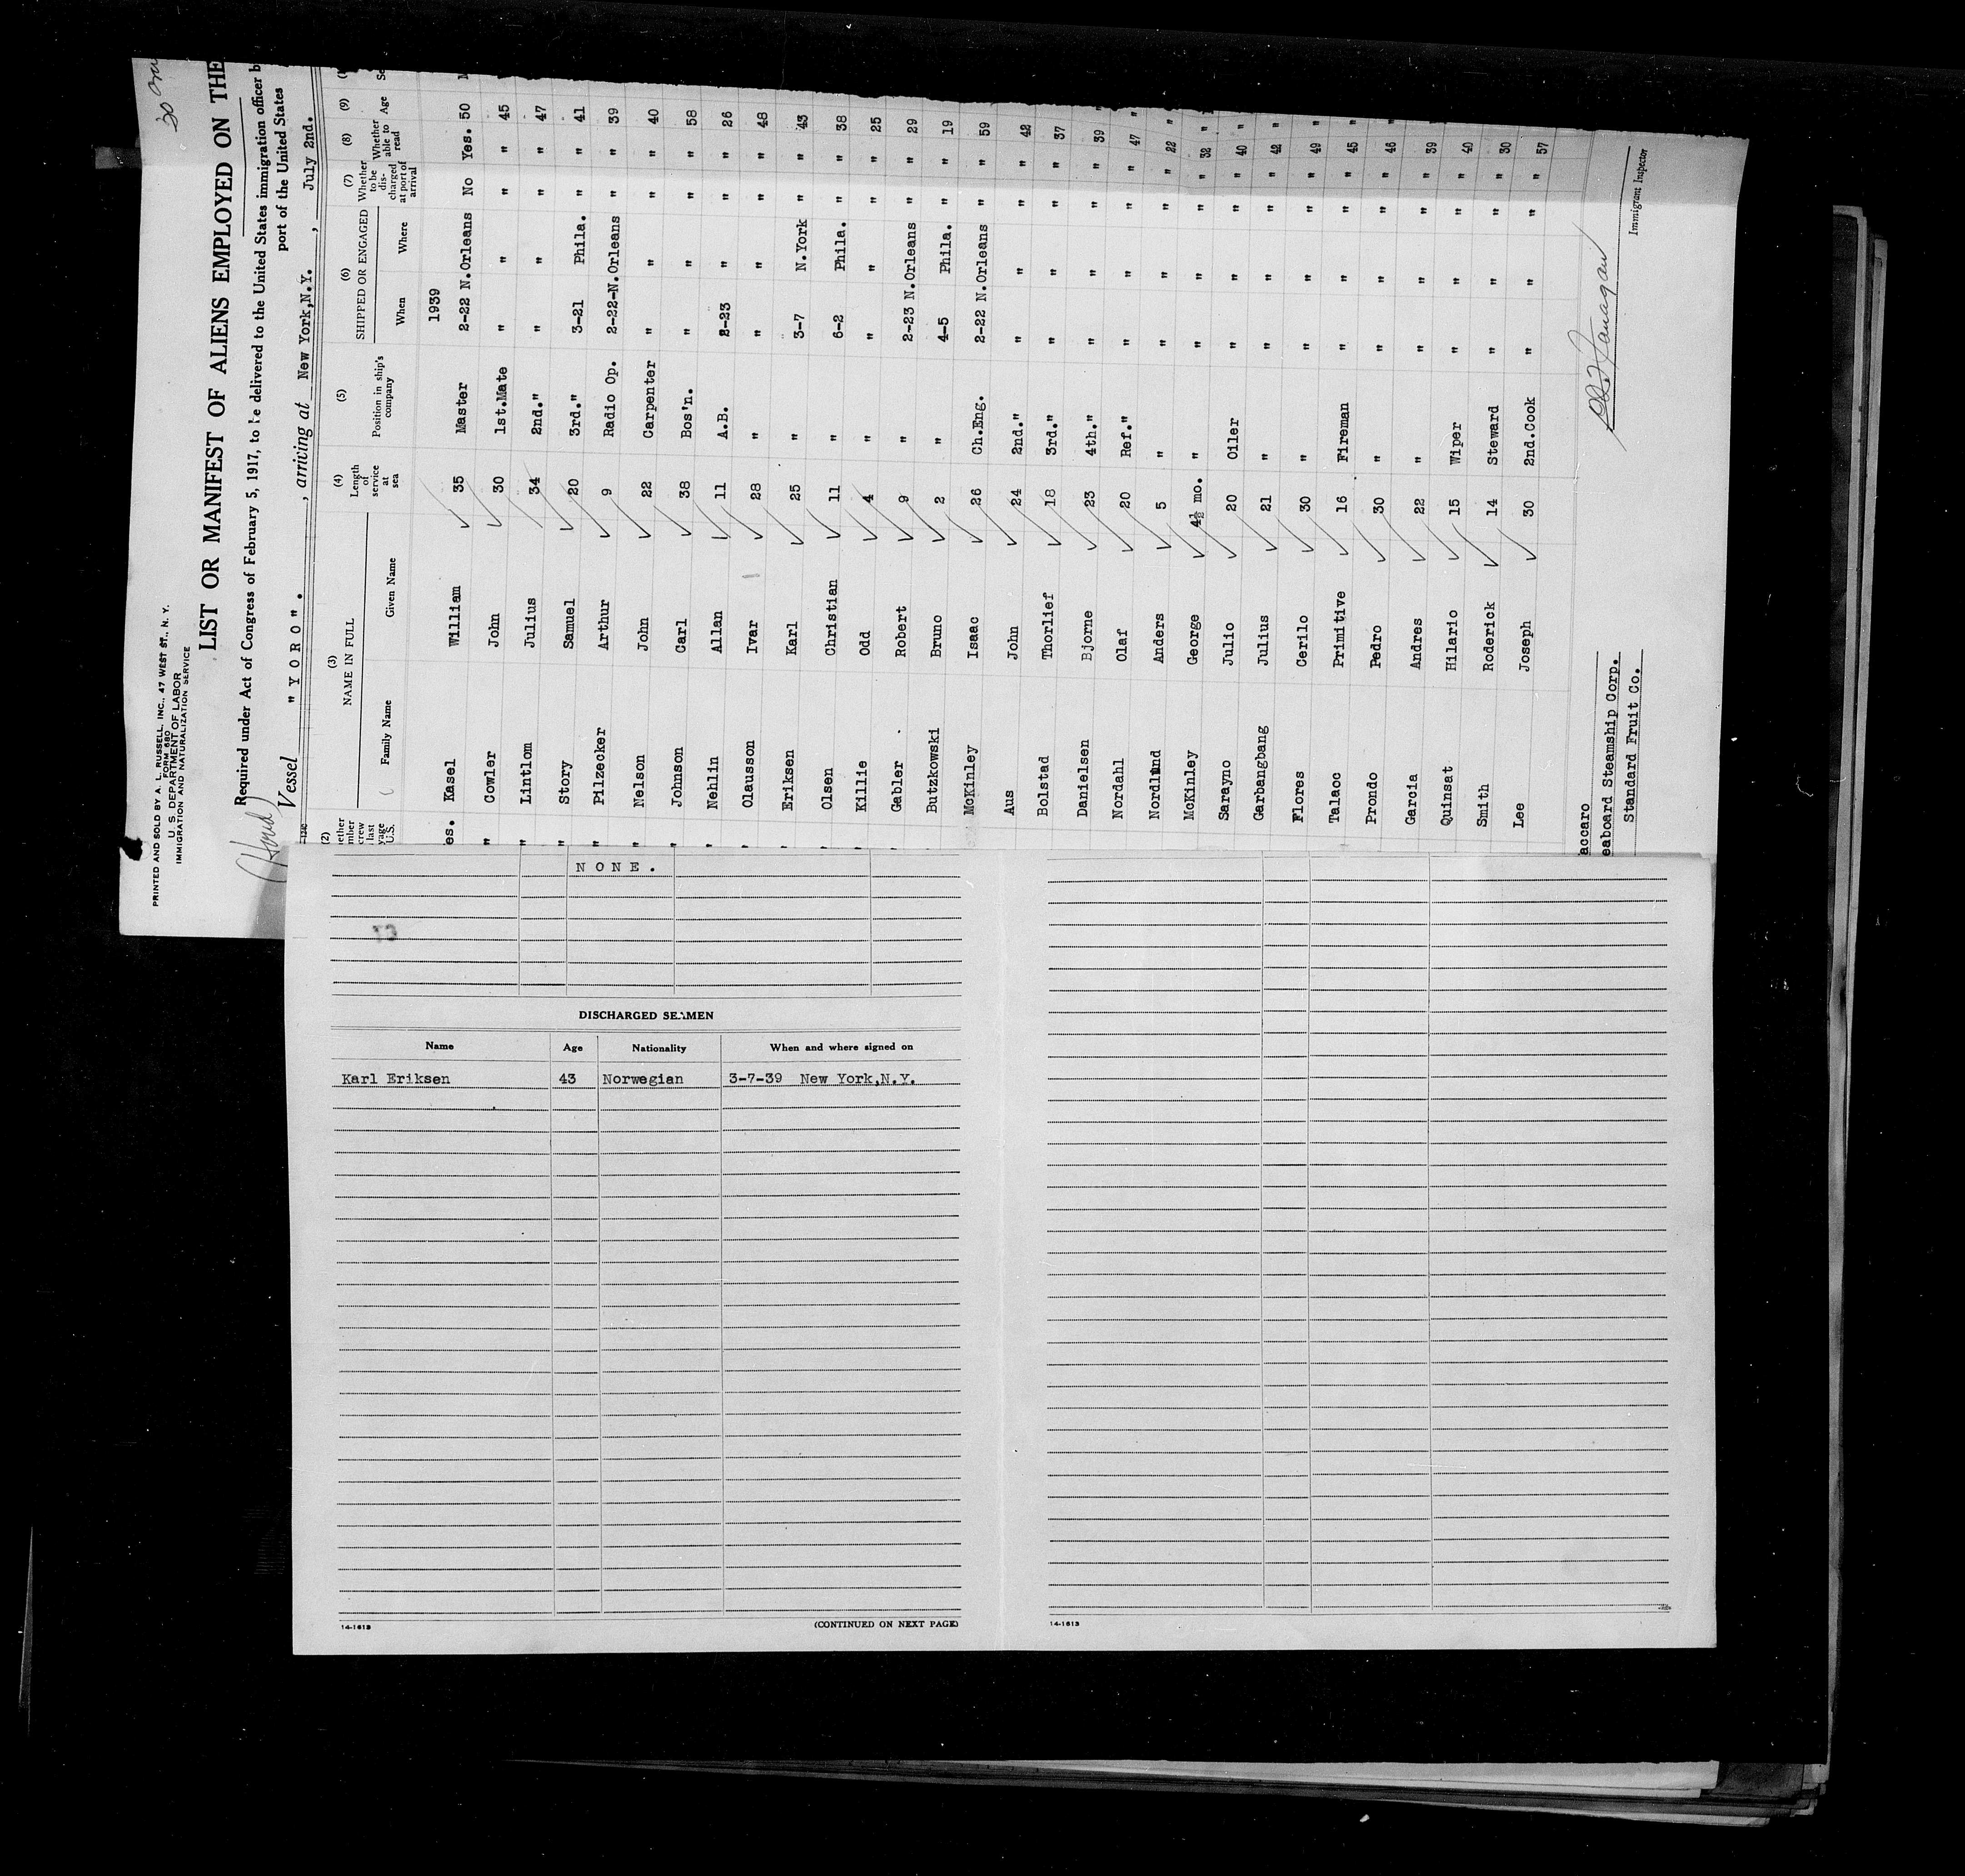 PRINTED AND SOLD BY A. L. RUSSELL, INC., 47 WEST ST., N. Y.
FORM 680
U. S. DEPARTMENT OF LABOR
IMMIGRATION AND NATURALIZATION SERVICE
LIST OR MANIFEST OF ALIENS EMPLOYED ON THE
Required under Act of Congress of February 5, 1917, to be delivered to the United States immigration officer b
port of the United States
Vessel "YORO". , arriving at New York,N.Y. , July 2nd.
(2) (3) (4) (5) (6) (7) (8) (9)
ether mber crew last yage U.S. NAME IN FULL Family Name Given Name Length of service at sea Position in ship's company SHIPPED OR ENGAGED When Where Whether to be discharged at port of arrival Whether able to read Age Se
1939
es. Kasel William 35 Master 2-22 N.Orleans No Yes. 50
" Cowler John 30 1st.Mate " " " " 45
" Lintlom Julius 34 2nd." " " " " 47
" Story Samuel 20 3rd." 3-21 Phila. " " 41
" Pilzecker Arthur 9 Radio Op. 2-22-N.Orleans " " 39
" Nelson John 22 Carpenter " " " " 40
" Johnson Carl 38 Bos'n. " " " " 58
" Nehlin Allan 11 A.B. 2-23 " " " 26
" Olausson Ivar 28 " " " " " 48
" Eriksen Karl 25 " 3-7 N.York " " 43
" Olsen Christian 11 " 6-2 Phila. " " 38
" Killie Odd 4 " " " " " 25
" Gebler Robert 9 " 2-23 N.Orleans " " 29
Butzkowski Bruno 2 " 4-5 Phila. " " 19
McKinley Isaac 26 Ch.Eng. 2-22 N.Orleans " " 59
Aus John 24 2nd." " " " " 42
Bolstad Thorlief 18 3rd." " " " " 37
Danielsen Bjorne 23 4th." " " " " 39
Nordahl Olaf 20 Ref." " " " " 47
Nordlund Anders 5 " " " " " 22
McKinley George 4½ mo. " " " " " 32
Sarayno Julio 20 Oiler " " " " 40
Garbangbang Julius 21 " " " " " 42
Flores Cerilo 30 " " " " " 49
Talacc Primitive 16 Fireman " " " " 45
Prondo Pedro 30 " " " " " 46
Garcia Andres 22 " " " " " 39
Quinsat Hilario 15 Wiper " " " " 40
Smith Roderick 14 Steward " " " " 30
Lee Joseph 30 2nd.Cook " " " " 57
accaro
eaboard Steamship Corp.
Standard Fruit Co.
Immigrant Inspector
NONE.
13
DISCHARGED SEAMEN
Name Age Nationality When and where signed on
Karl Eriksen 43 Norwegian 3-7-39 New York,N.Y.
(CONTINUED ON NEXT PAGE)
14-1613
14-1613